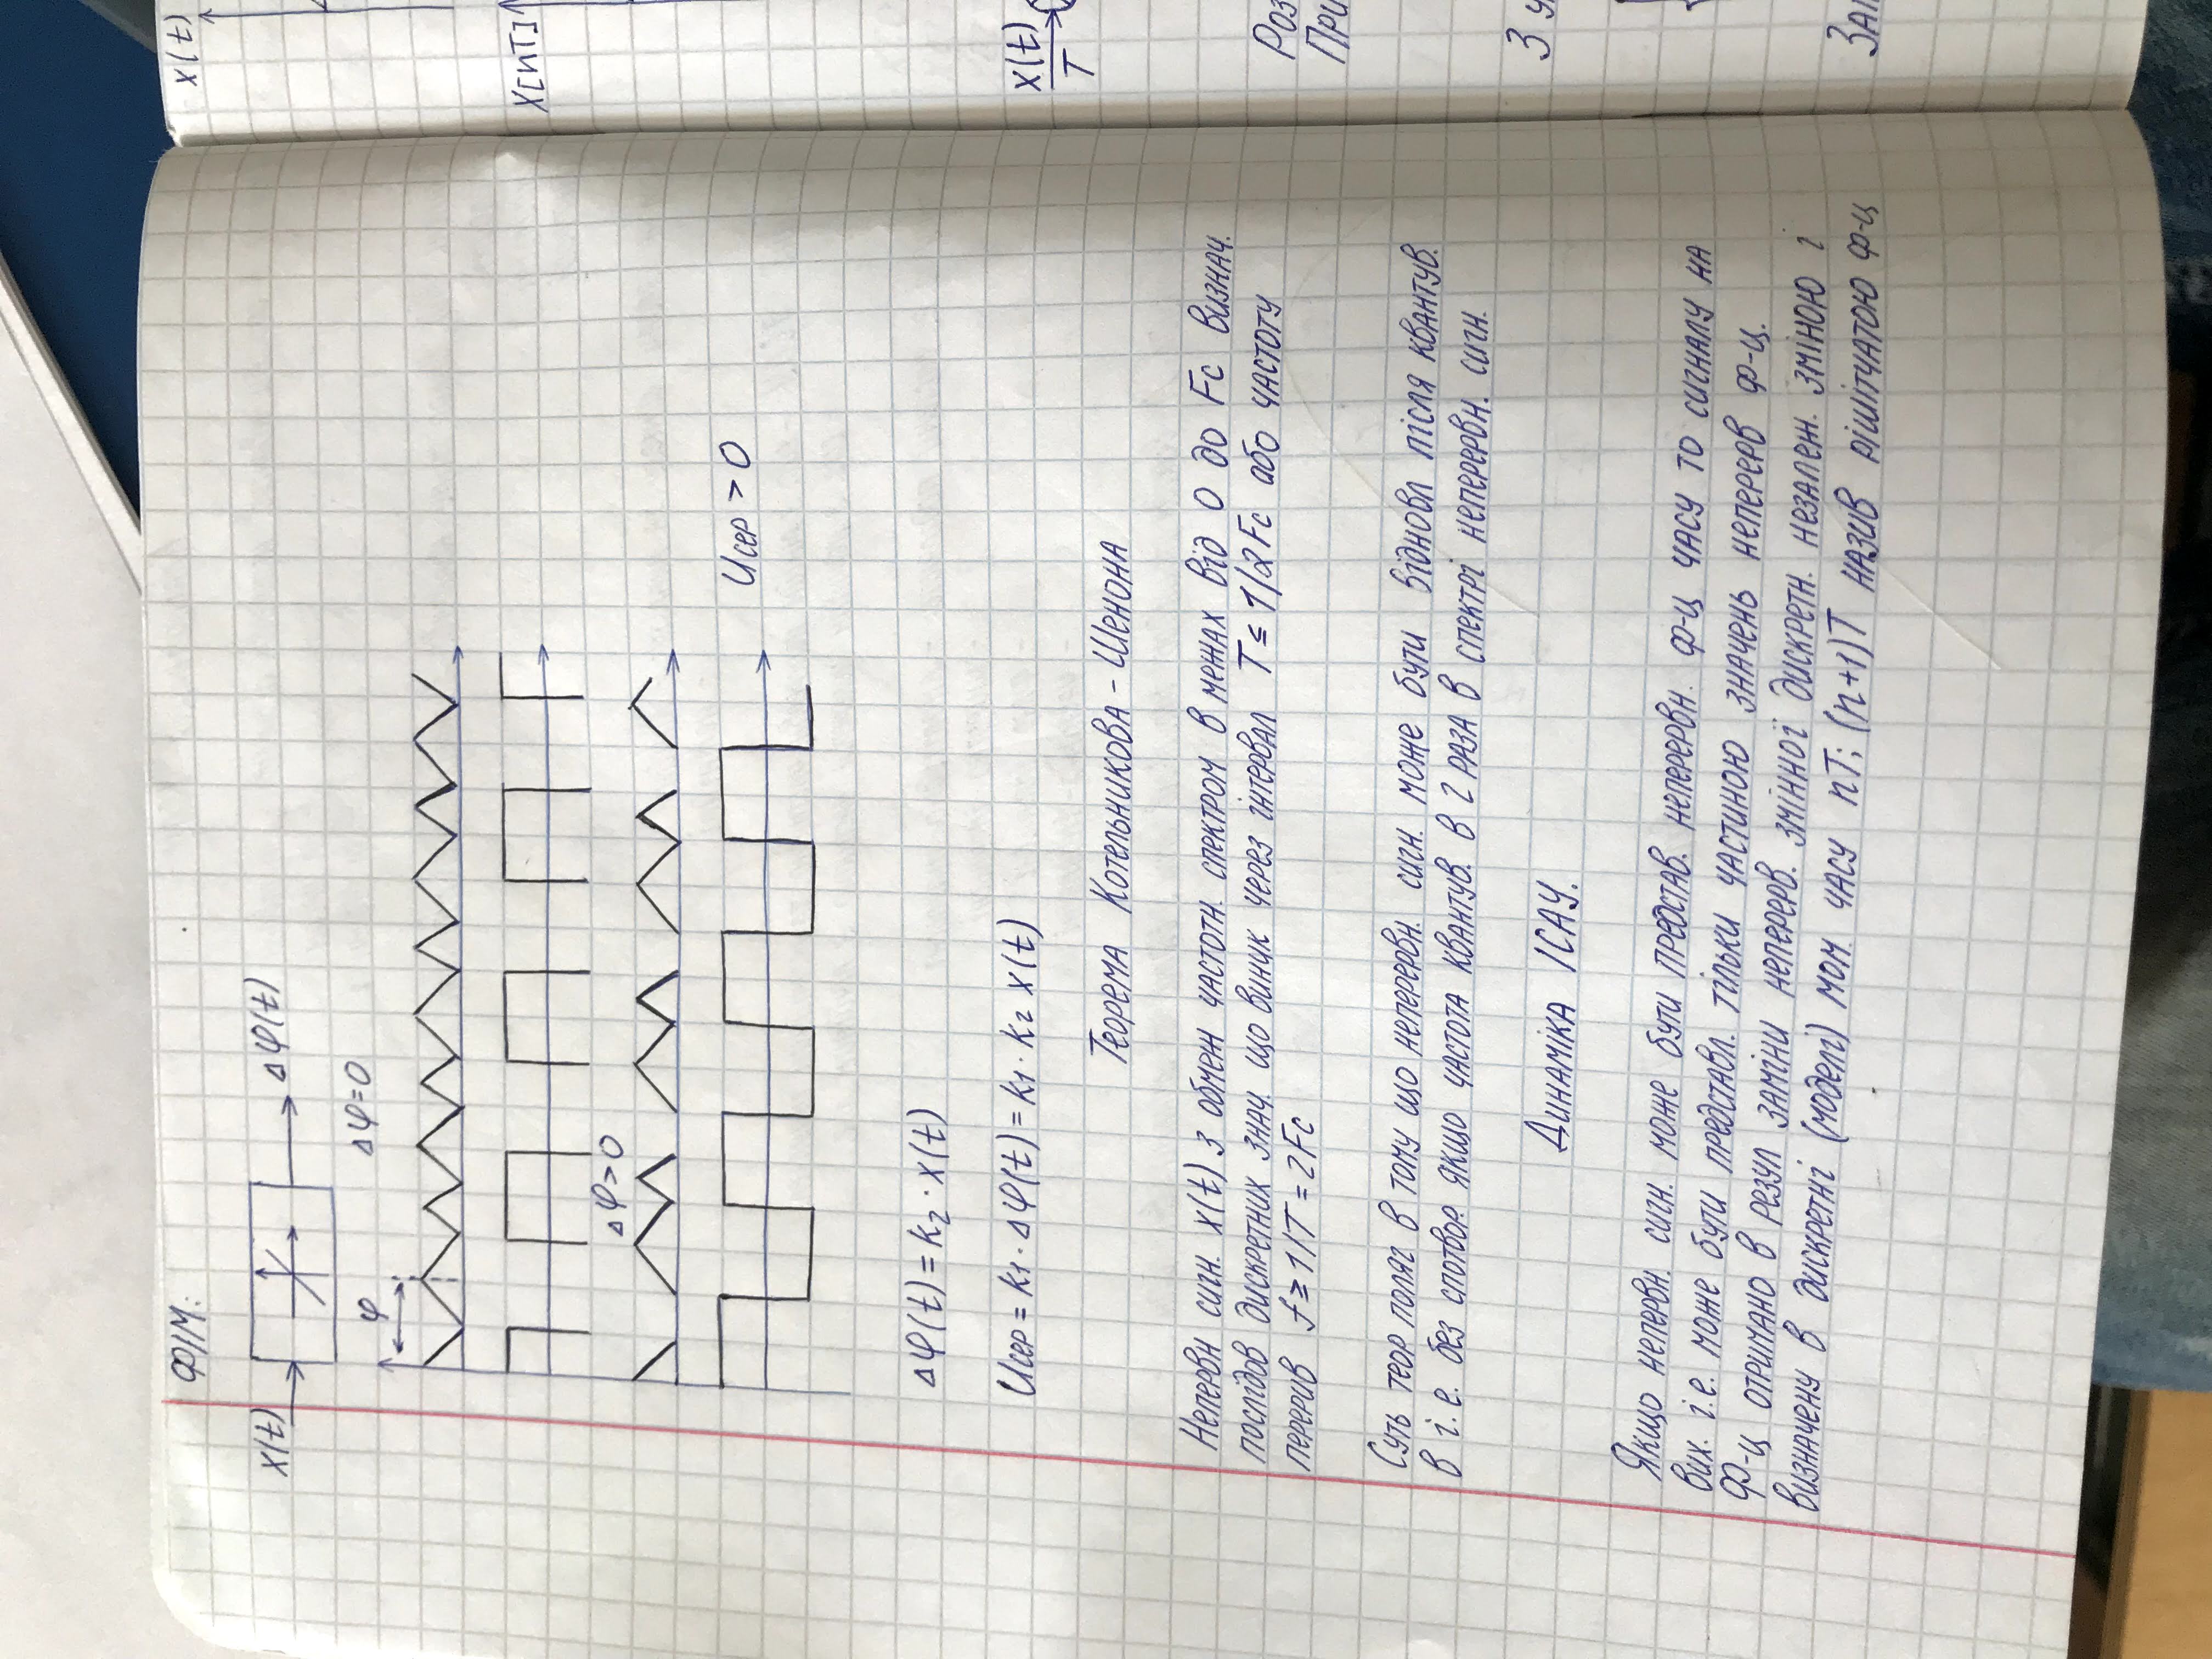 ФІМ:
x(t)
Δφ(t)
φ
Δφ=0
Δφ>0
Uсер > 0
Δφ(t)=k₂·x(t)
Uсер = k1·Δφ(t)=k1·k₂ x(t)
Теорема Котельникова – Шенона
Непервн сигн. x(t) з обмеж частотн. спектром в межах від 0 до Fc визнач.
послідов дискретних знач. що виник через інтервал T ≤ 1/2Fc або частоту
перерив f ≥ 1/T = 2Fc
Суть теор поляг в тому що неперервн. сигн. може бути відновл після квантув.
в і.е. без спотвор. якщо частота квантув. в 2 раза в спектрі неперервн. сигн.
Динаміка ІСАУ.
Якщо непервн. сигн. може бути представ. неперервн. ф-ц часу то сигналу на
вих. і.е. може бути представл. тільки частиною значень неперерв ф-ц.
Ф-ц отримано в резул заміни неперерв. змінної дискретн. незалеж. зміною і
визначену в дискретні (моделі) мом. часу nT; (n+1)T назив рішітчатою ф-ц
x(t)
X[nT]
x(t)
T
Роз
При
З у
Зап